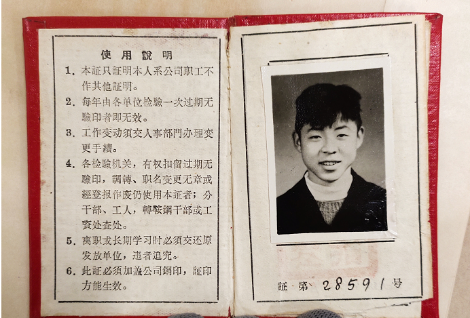 使用說明
1．本証只証明本人系公司职工不
作其他証明。
2．每年由各单位检驗一次过期无
驗印者即无效。
3．工作变动須交人事部門办理变
更手續。
4．各检驗机关，有权扣留过期无
驗印，調轉、职名变更无章或
經登报作废仍使用本証者；分
干部、工人，轉鞍鋼干部或工
资处查处。
5．离职或长期学习时必須交还原
发放单位，违者追究。
6．此証必須加盖公司鋼印，証印
方能生效。
証 第 28591 号